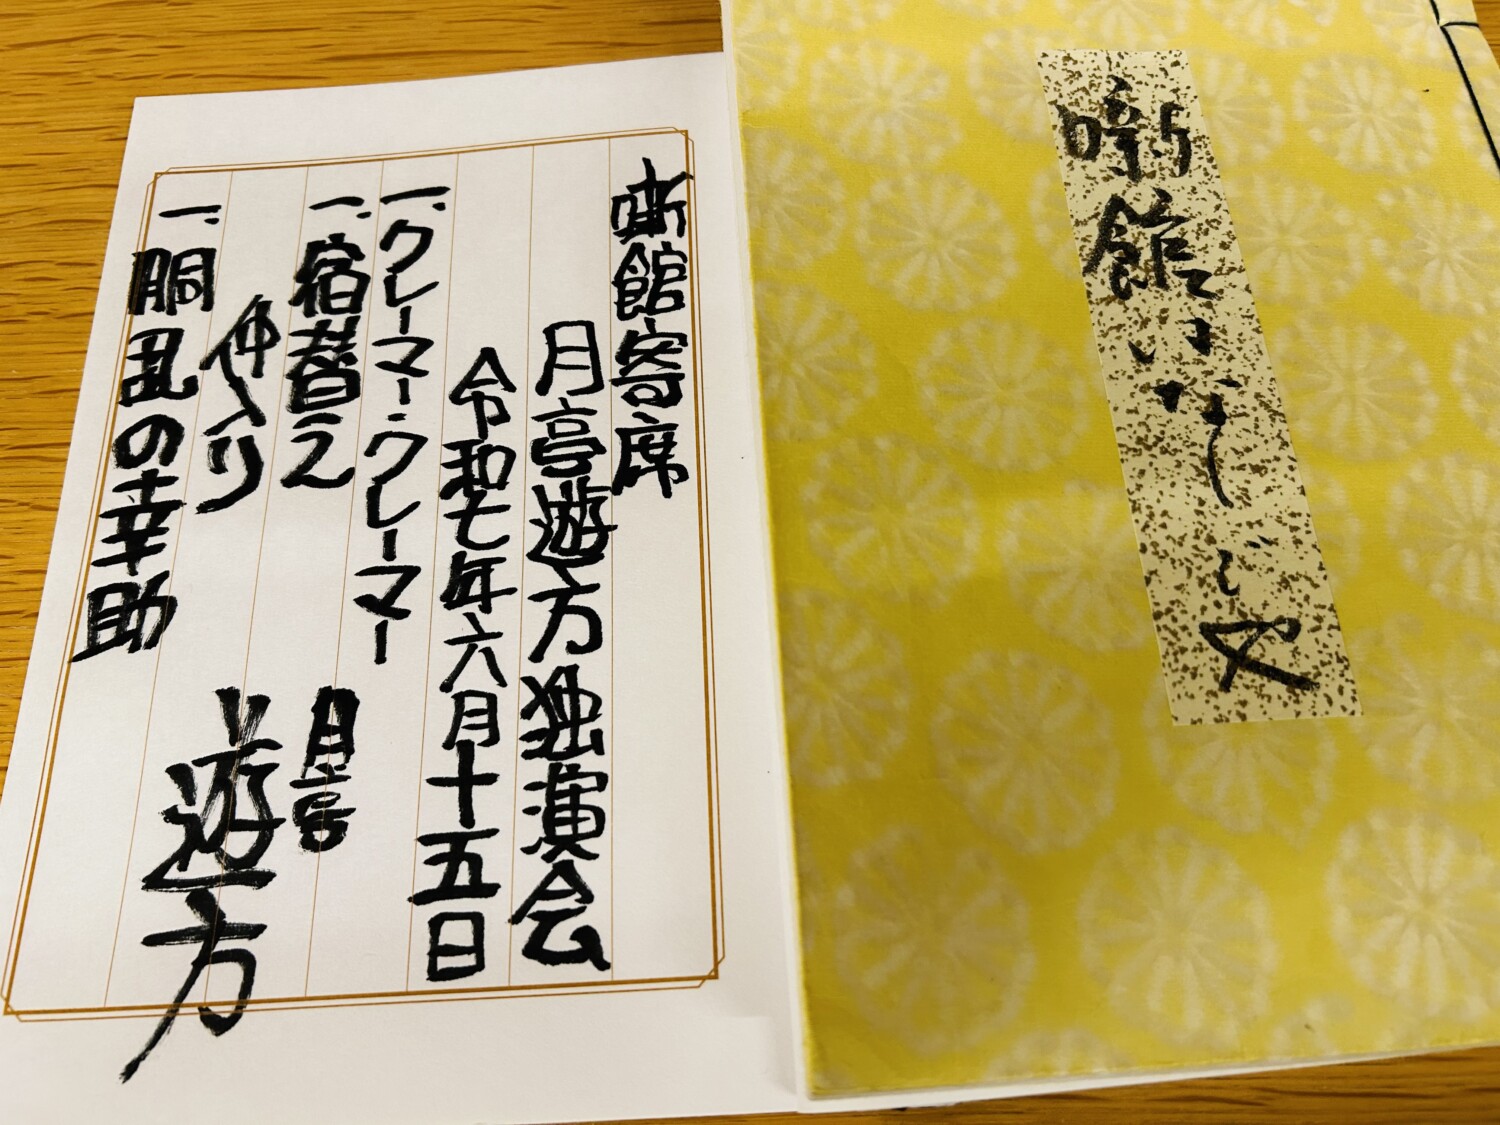 噺館はなしじや
噺館寄席
月亭遊方独演会
令和七年六月十五日
一、クレーマー・クレーマー
一、宿替え
月亭
仲入り
遊方
一、胴乱の幸助